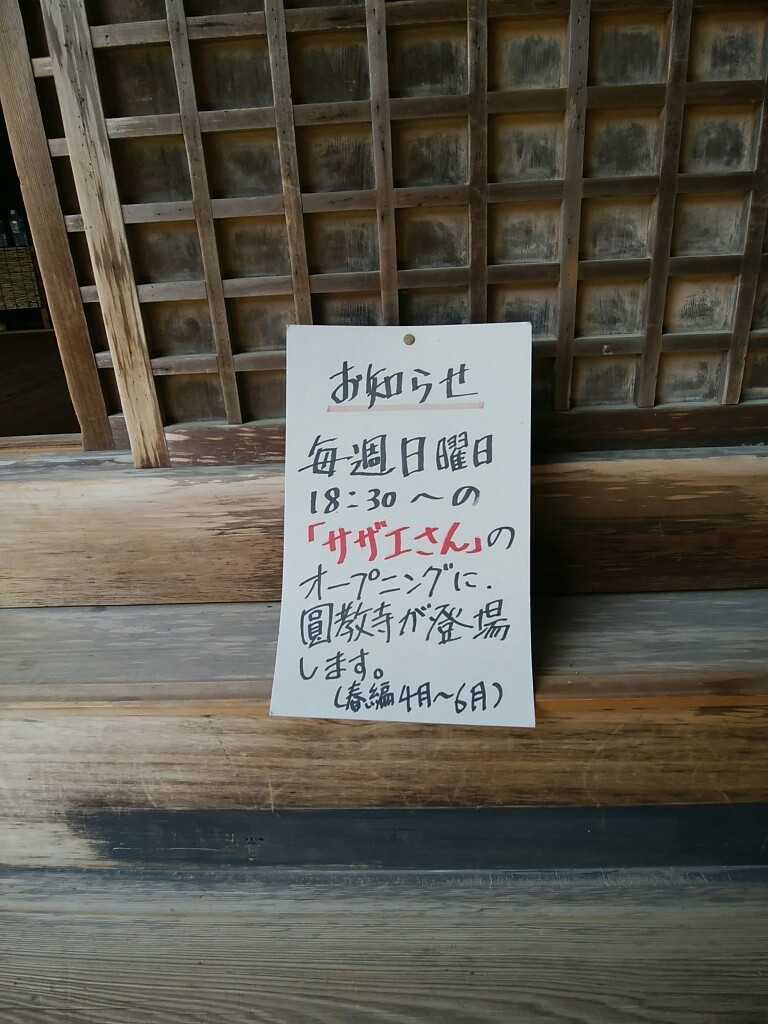 お知らせ
毎週日曜日
18:30～の
「サザエさん」の
オープニングに、
圓教寺が登場
します。
(春編4月～6月)